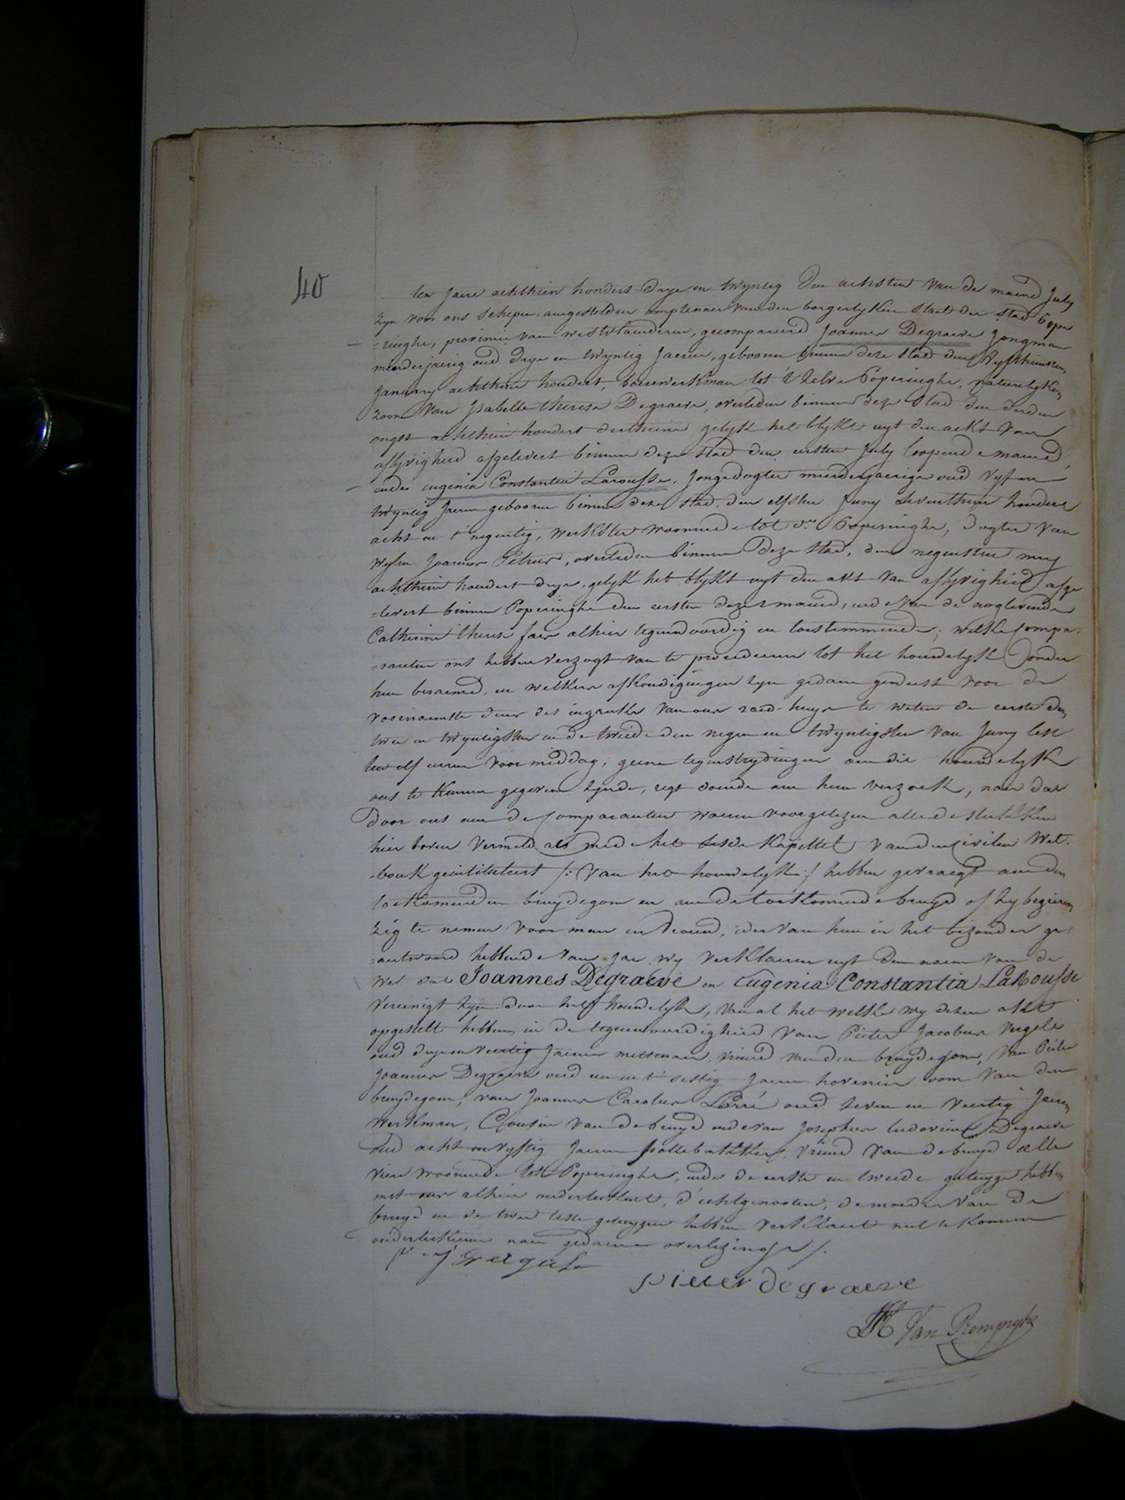 40
ten Jaere achthien hondert drye en twyntig den achtsten van de maend July
zyn voor ons schepen aengestelden amptenaer van den borgerlyken staet der stad Pope
ringhe, provincie van westvlaenderen, gecompareerd Joannes Degraeve jongman
meerderjarig oud drye en twyntig Jaeren, gebooren binnen deze stad den vyfthiensten
January achthien hondert, boerewerkman tot 't zelve Poperinghe, natuerlyken
zoon van Isabelle Therese Degraeve, overleden binnen deze stad den derden
ougst achthien hondert derthiene gelyk het blykt uyt den ackt van
aflyvigheid afgelevert binnen deze stad den eersten July loopende maend,
ende eugenia Constantia Larousse, Jongedogter meerderjaerige oud vyf en
twyntig Jaeren gebooren binnen deze stad, den elfsten Juny seventhien hondert
acht en t'negentig, werkster woonende tot d'n Poperinghe, dogter van
wylen Joannes Petrus, overleden binnen deze stad, den negensten mey
achthien hondert drye, gelyk het blykt uyt den akt van aflyvigheid afge
levert binnen Poperinghe den eersten dezer maend, ende van de noglevende
Catherine Therese fair alhier tegenwoordig en toestemmende; welke compa
ranten ons hebben verzogt van te procederen tot het houwelyk tusschen
hun beraemd, en welkers afkondigingen zyn gedaen geweest voor de
voornaemste deur des ingank van ons raed-huys te weten de eerste den
twee en twyntigsten en de tweede den negen en twyntigsten van Juny lest
ten elf uren voormiddag; geene tegenstrydingen aen die houwelyk
ons te kennen gegeven zynde, regt doende aen hun verzoek, naer dat
door ons aen de Comparanten waeren voorgelezen alle de stukken
hier boven vermeld als mede het seste kapittel van den Civilen Wet
boek geintituleert /: Van het houwelyk :/ hebben gevraegt aen den
toekomenden bruydegom en aen de toekomende bruyd of hy begeiren
zig te nemen voor man en vrouw, ider van hun in het bezonder ge
antwoord hebbende van Jae, wy verklaeren uyt den naem van de
Wet dat Joannes Degraeve en Eugenia Constantia Larousse
vereenigt zyn door het houwelyk, van al het welk wy dezen akt
opgestelt hebben in de tegenwoordigheid van Pieter Jacobus Vergels
oud drye en veertig Jaeren metsenaer, vriend van den bruydegom, van Pieter
Joannes Degraeve oud een en t'sestig Jaeren hovenier oom van den
bruydegom, van Joannes Carolus Larré oud seven en veertig Jaeren
Werkman, Cousin van de bruyd ende van Josephus Ludovicus Degraeve
oud acht en vyftig Jaeren pottebakker, vriend van de bruyd alle
viere woonende tot Poperinghe, ende de eerste en tweede getuygen hebben
met ons alhier onderteekent, d'echtgenooten, de moeder van de
bruyd en de twee leste getuygen hebben verklaert niet te konnen
onderteekenen naer gedaene overlezing /.
p. j. Vergels
pieter degraeve
Van Renynghe